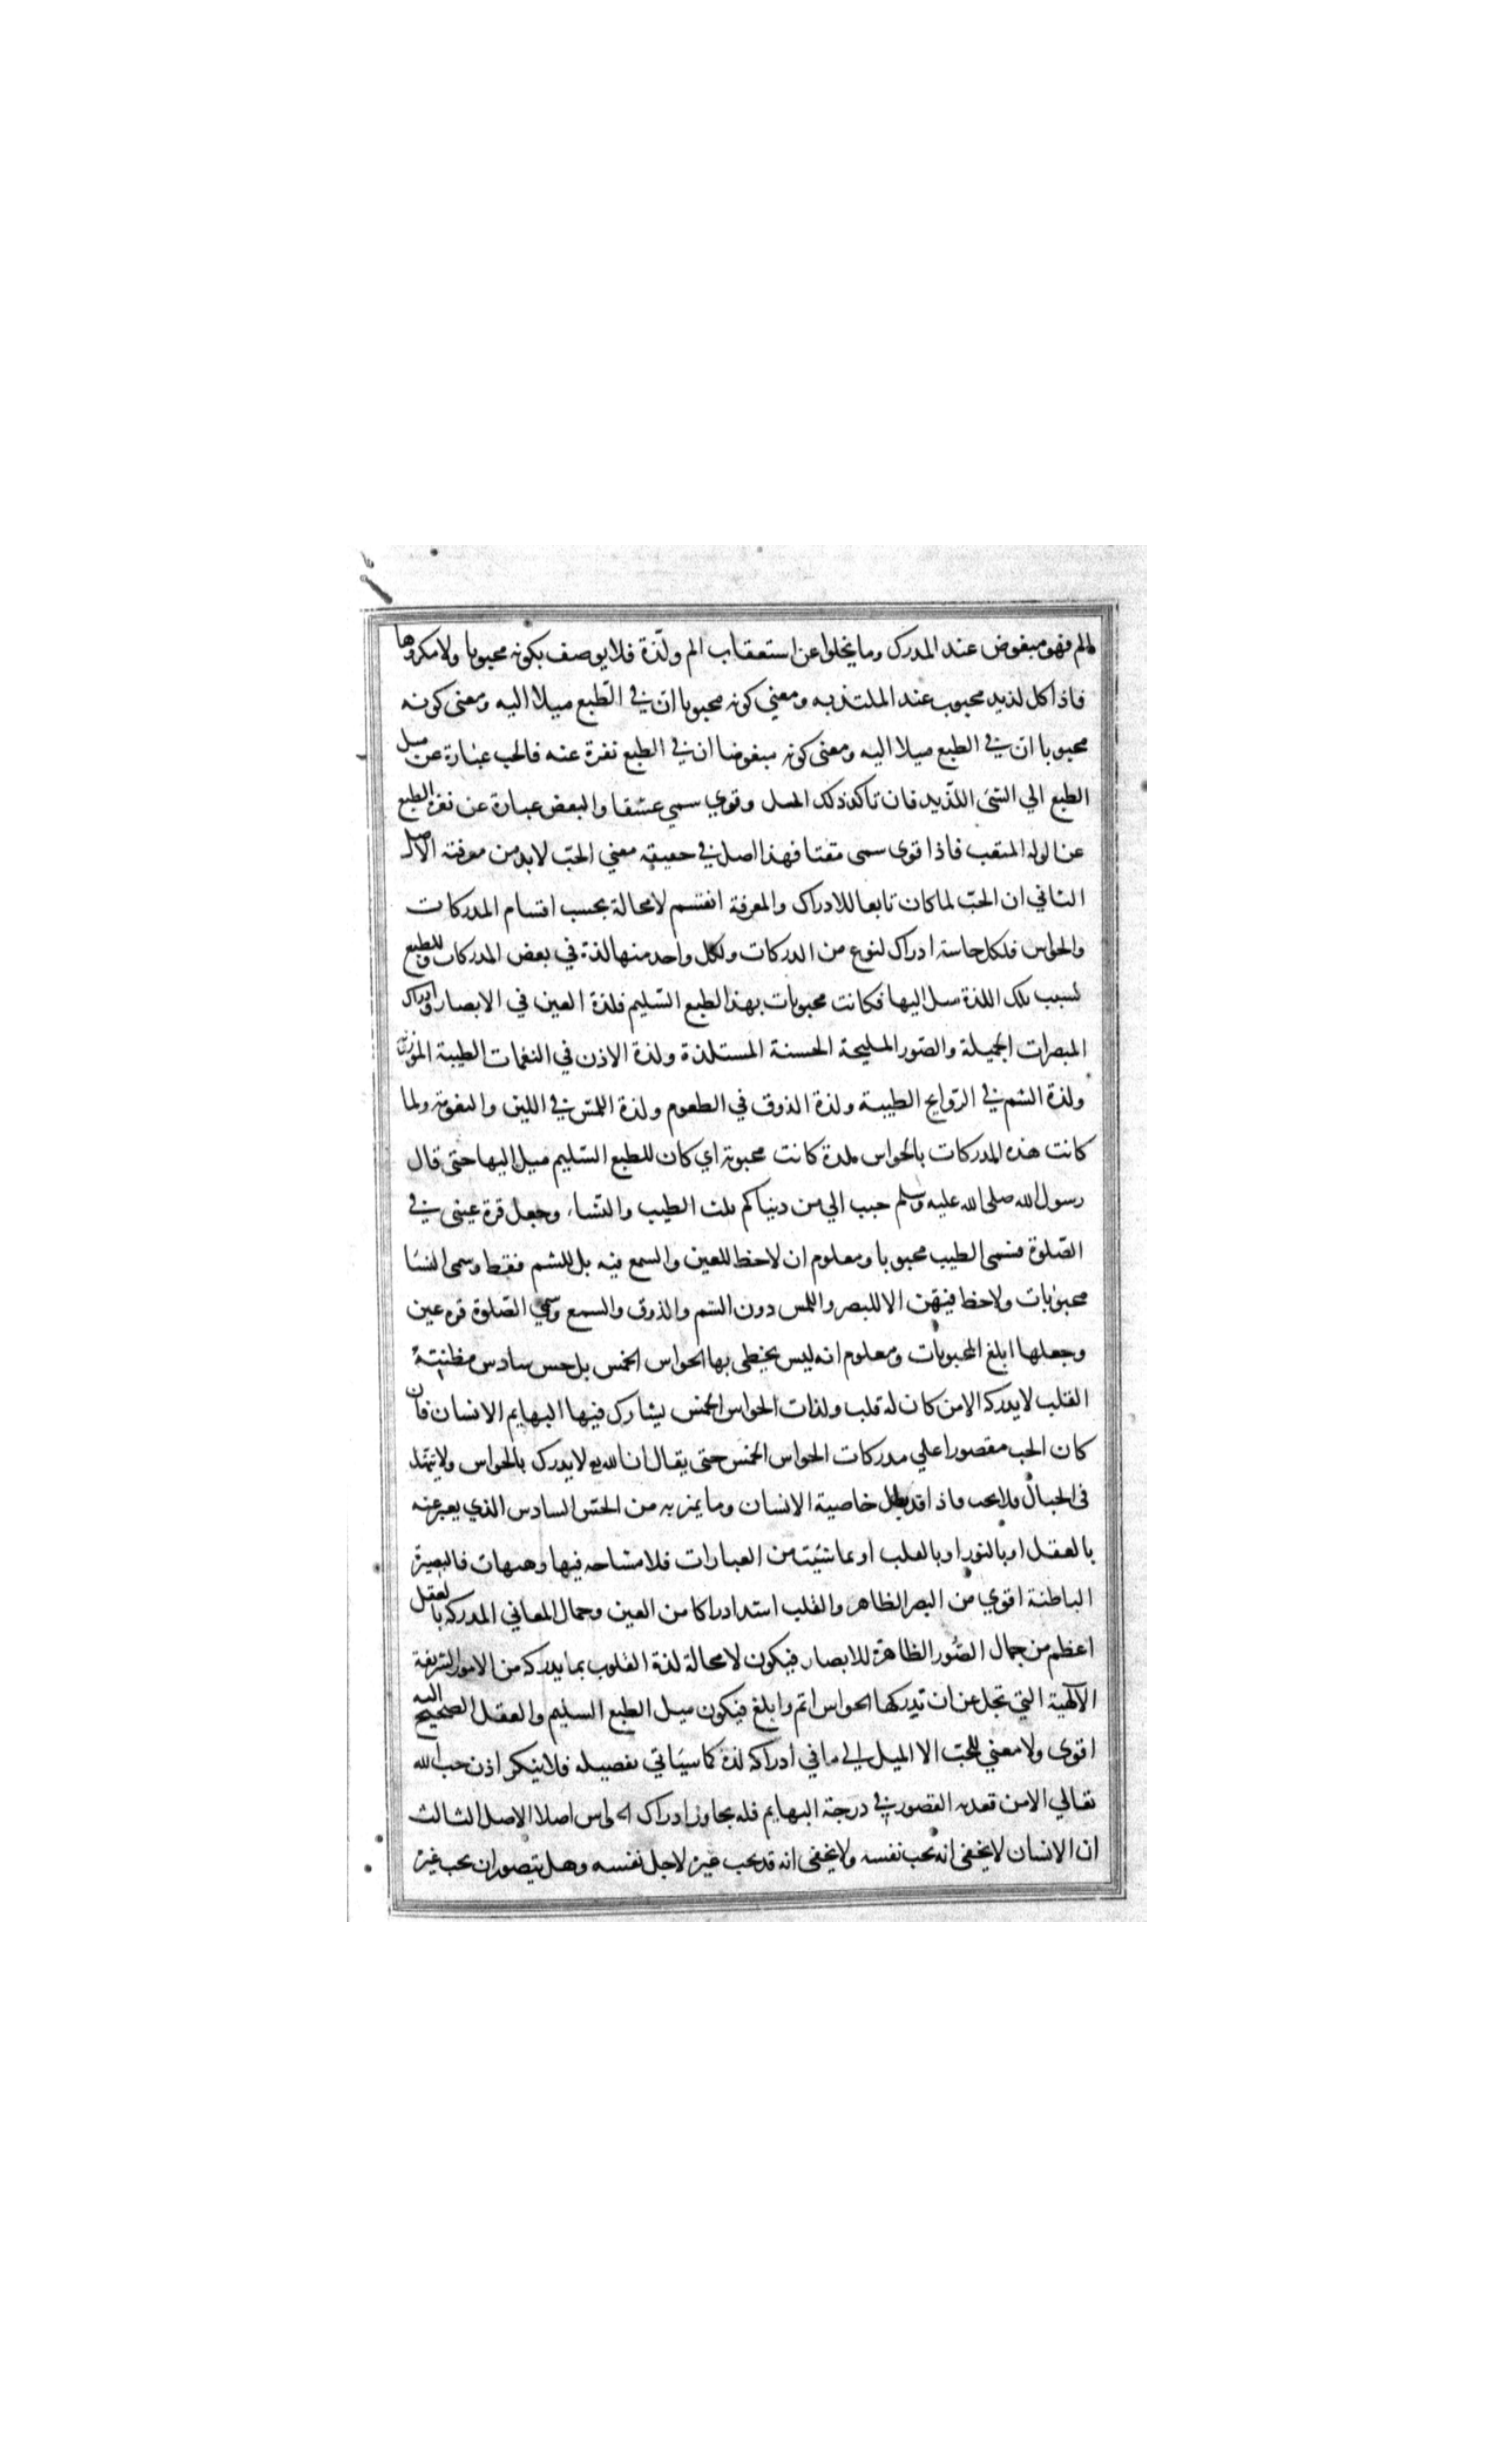 والم فهو مبغوض عند المدرك وما يخلوا عن استعقاب الم ولذّة فلا يوصف بكونه محبوبا ولا مكروها
فاذا كل لذيد محبوب عند الملتذ به ومعني كونه محبوبا ان في الطّبع ميلا اليه ومعنى كونه
محبوبا ان في الطبع ميلا اليه ومعنى كونه مبغوضا ان في الطبع نفرة عنه فالحب عبارة عن ميل
الطبع الي الشئ اللذّيد فان تاكد ذلك الميل وقوي سمي عشقا والبغض عبارة عن نفرة الطبع
عن المتعب فاذا قوى سمى مقتا فهذا اصل في حقيقه معني الحبّ لا بد من معرفته الاصل
الثاني ان الحبّ لما كان تابعا للادراك والمعرفة انقسم لا محالة بحسب اقسام المدركات
والحواس فلكل حاسة ادراك لنوع من المدركات ولكل واحد منها لذة في بعض المدركات وللطبع
لسبب تلك اللذة ميل اليها فكانت محبوبات بهذا الطبع السّليم فلذة العين في الابصار وادراك
المبصرات الجميلة والصّور المليحة الحسنة المستلذة ولذة الاذن في النغمات الطيبة الموزونة
ولذة الشم في الرّوايح الطيبة ولذة الذوق في الطعوم ولذة اللمس في اللين والنعومة ولما
كانت هذه المدركات بالحواس ملذة كانت محبوبة اي كان للطبع السّليم ميل اليها حتى قال
رسول الله صلى الله عليه وسلم حبب الي من دنياكم ثلث الطيب والنّساء وجعل قرة عيني في
الصّلوة فسمى الطيب محبوبا ومعلوم ان لاحظ للعين والسمع فيه بل للشم فقط وسمى النسا
محبوبات ولاحظ فيهن الا للبصر واللمس دون الشم والذوق والسمع وسمي الصّلوة قره عين
وجعلها ابلغ المحبوبات ومعلوم انه ليس يحظى بها الحواس الخمس بل حس سادس مظنته
القلب لا يدركه الا من كان له قلب ولذات الحواس الخمس يشارك فيها البهايم الانسان فان
كان الحب مقصورا علي مدركات الحواس الخمس حتى يقال ان الله تع لا يدرك بالحواس ولا يتمثل
في الخيال فلا يحب فاذا قد بطل خاصية الانسان وما يميز به من الحسّ السادس الذي يعبر عنه
بالعقل او بالنور او بالقلب او بما شئت من العبارات فلا مشاحه فيها وهيهات فالبصيرة
الباطنة اقوي من البصر الظاهر والقلب اشد ادراكا من العين وجمال المعاني المدركه بالعقل
اعظم من جمال الصّور الظاهرة للابصار فيكون لا محالة لذة القلوب بما يدركه من الامور الشريفة
الآلهية التي تجل عن ان تدركها الحواس اتم وابلغ فيكون ميل الطبع السليم والعقل الصحيح اليه
اقوى ولا معني للحبّ الا الميل الي ما في ادراكه لذة كما سيأتي تفصيله فلا ينكر اذن حب الله
تعالي الا من قعد به القصور في درجة البهايم فلم يجاوز ادراك الحواس اصلا الاصل الثالث
ان الانسان لا يخفى انه يحب نفسه ولا يخفى انه قد يحب غيره لاجل نفسه وهل يتصور ان يحب غيره